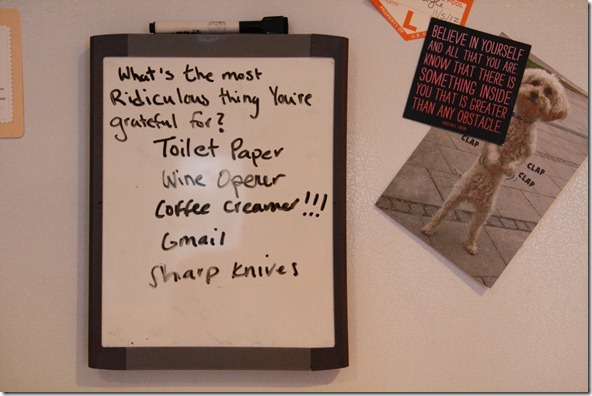 What's the most
Ridiculous thing You're
grateful for?
Toilet Paper
Wine Opener
Coffee Creamer!!!
Gmail
Sharp Knives
L
BELIEVE IN YOURSELF
AND ALL THAT YOU ARE
KNOW THAT THERE IS
SOMETHING INSIDE
YOU THAT IS GREATER
THAN ANY OBSTACLE
CLAP
CLAP
CLAP